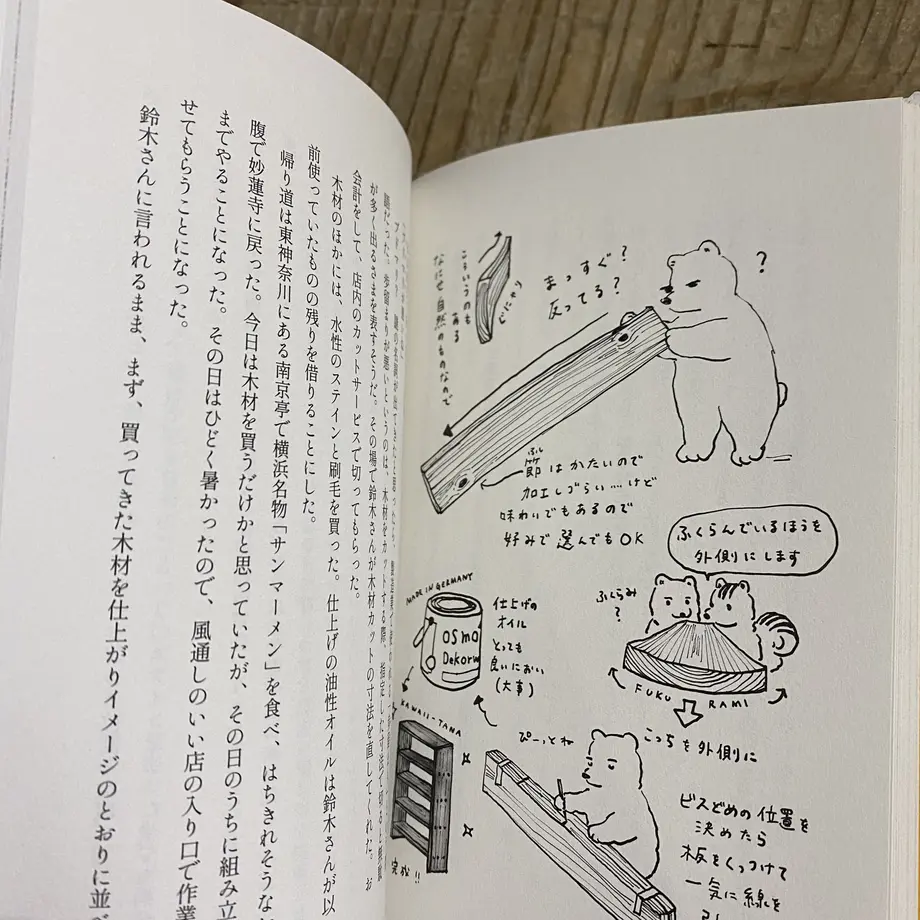 が多く出るさまを表すそうだ。その場で鈴木さんが木材カットの寸法を直してくれた。お
会計をして、店内のカットサービスで切ってもらった。
木材のほかには、水性のステインと刷毛を買った。仕上げの油性オイルは鈴木さんが以
前使っていたものの残りを借りることにした。
帰り道は東神奈川にある南京亭で横浜名物「サンマーメン」を食べ、はちきれそうな
腹で妙蓮寺に戻った。今日は木材を買うだけかと思っていたが、その日のうちに組み立
までやることになった。その日はひどく暑かったので、風通しのいい店の入り口で作業
せてもらうことになった。
鈴木さんに言われるまま、まず、買ってきた木材を仕上がりイメージのとおりに並べ
?
まっすぐ?
反ってる?
ぐにゃり
こういうのも
ある
なにせ自然のものなので
ふし
節はかたいので
加工しづらい……けど
味わいでもあるので
好みで選んでもOK
ふくらんでいるほうを
外側にします
ふくらみ
?
FUKU RAMI
こっちを外側に
MADE IN GERMANY
OSMO
Dekorw
仕上げの
オイル
とっても
良いにおい
(大事)
KAWAII-TANA
完成!!
ぴーっとね
ビスどめの位置を
決めたら
板をくっつけて
一気に線を